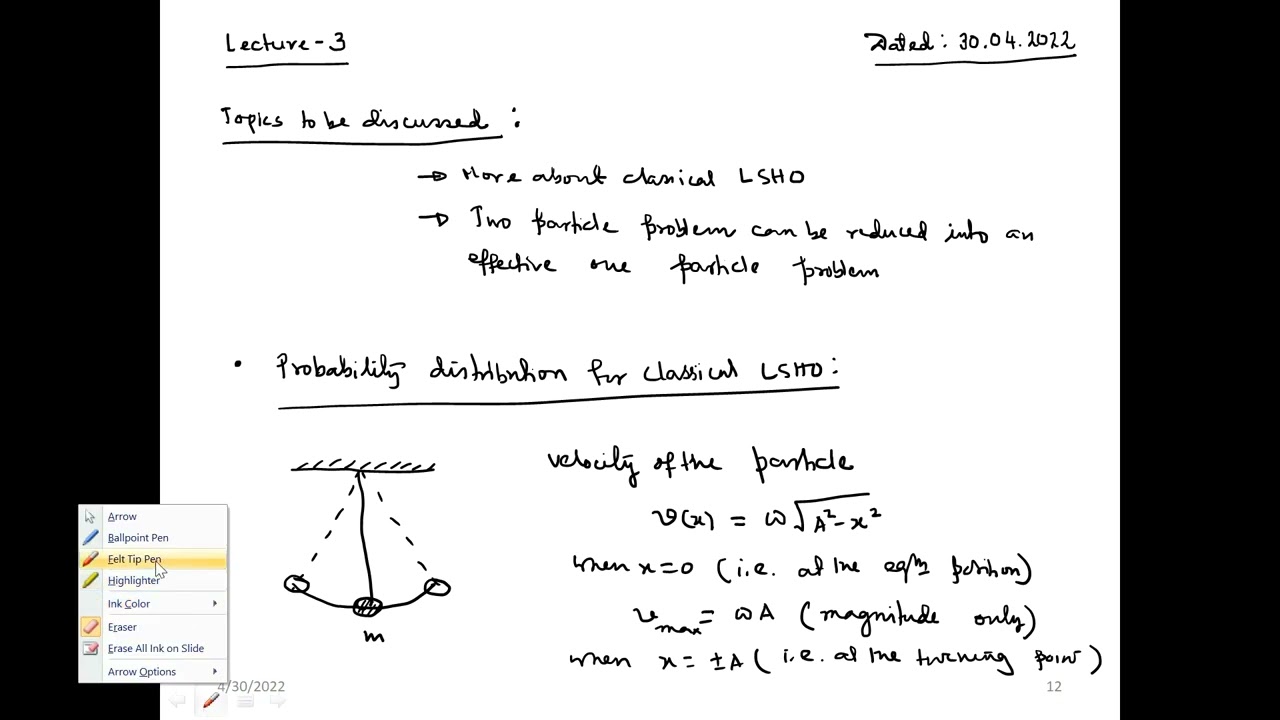 Lecture-3
Dated: 30.04.2022
Topics to be discussed :
→ More about classical LSHO
→ Two particle problem can be reduced into an
effective one particle problem
• Probability distribution for classical LSHO:
velocity of the particle
v(x) = ω√A²-x²
when x=0 (i.e. at the eqm position)
v_max = ωA (magnitude only)
when x = ±A (i.e. at the turning point)
m
Arrow
Ballpoint Pen
Felt Tip Pen
Highlighter
Ink Color
Eraser
Erase All Ink on Slide
Arrow Options
4/30/2022
12